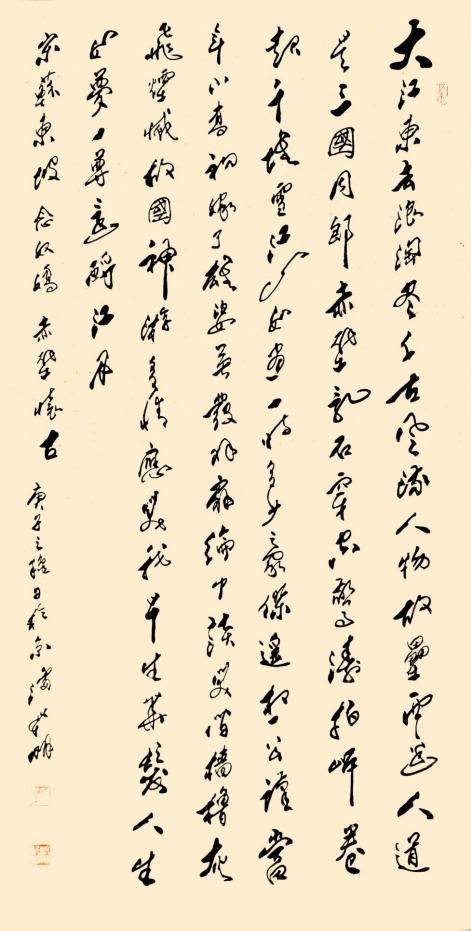 大江東去浪淘盡千古風流人物故壘西邊人道
是三國周郎赤壁亂石穿空驚濤拍岸卷
起千堆雪江山如畫一時多少豪傑遙想公瑾當
年小喬初嫁了雄姿英發羽扇綸巾談笑間檣櫓灰
飛煙滅故國神游多情應笑我早生華髮人生
如夢一尊還酹江月
宋蘇東坡念奴嬌赤壁懷古 庚子之穐日於京潘明